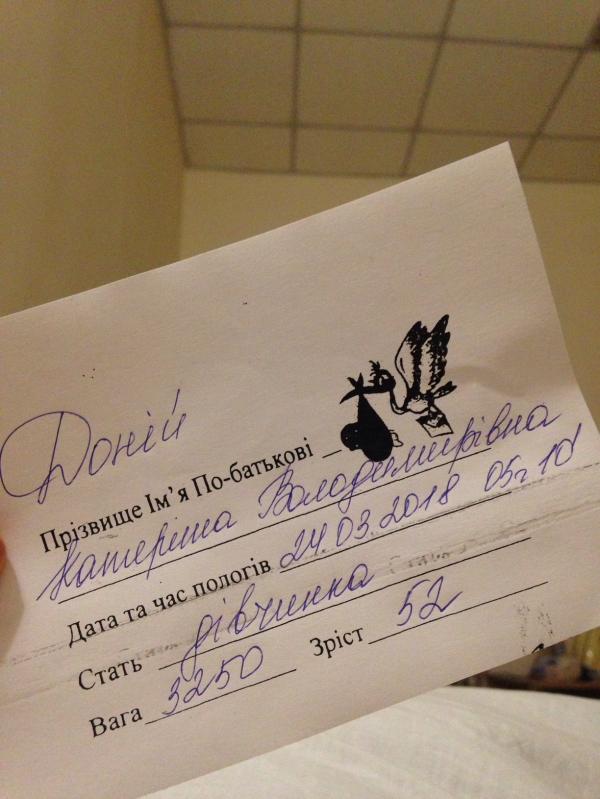 Доній
Прізвище Ім'я По-батькові
Катерина Володимирівна
Дата та час пологів 24.03.2018 05г 10'
Стать дівчинка
Вага 3250 Зріст 52